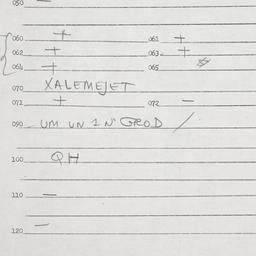 050 —
060 + 061 +
062 + 063 - +
064 + 065
070 XALEMEJET
071 + 072 —
090 - UM UN 1 N° GROD /
100 QH
110 —
120 —